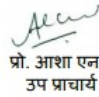 प्रो. आशा एन
उप प्राचार्य